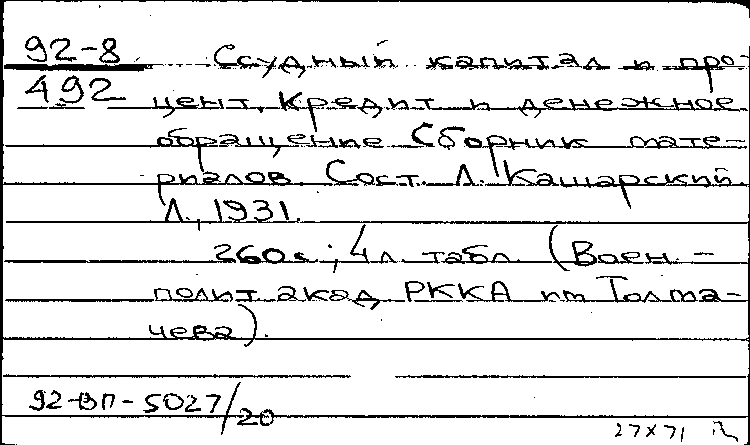 92-8
492
Ссудный капитал и про-
цент. Кредит и денежное
обращение Сборник мате-
риалов. Сост. Л. Кашарский.
Л., 1931.
260 с.; 4 л. табл. (Воен.-
полит. акад. РККА им Толма-
чева).
92-ВП-5027/20
27x71